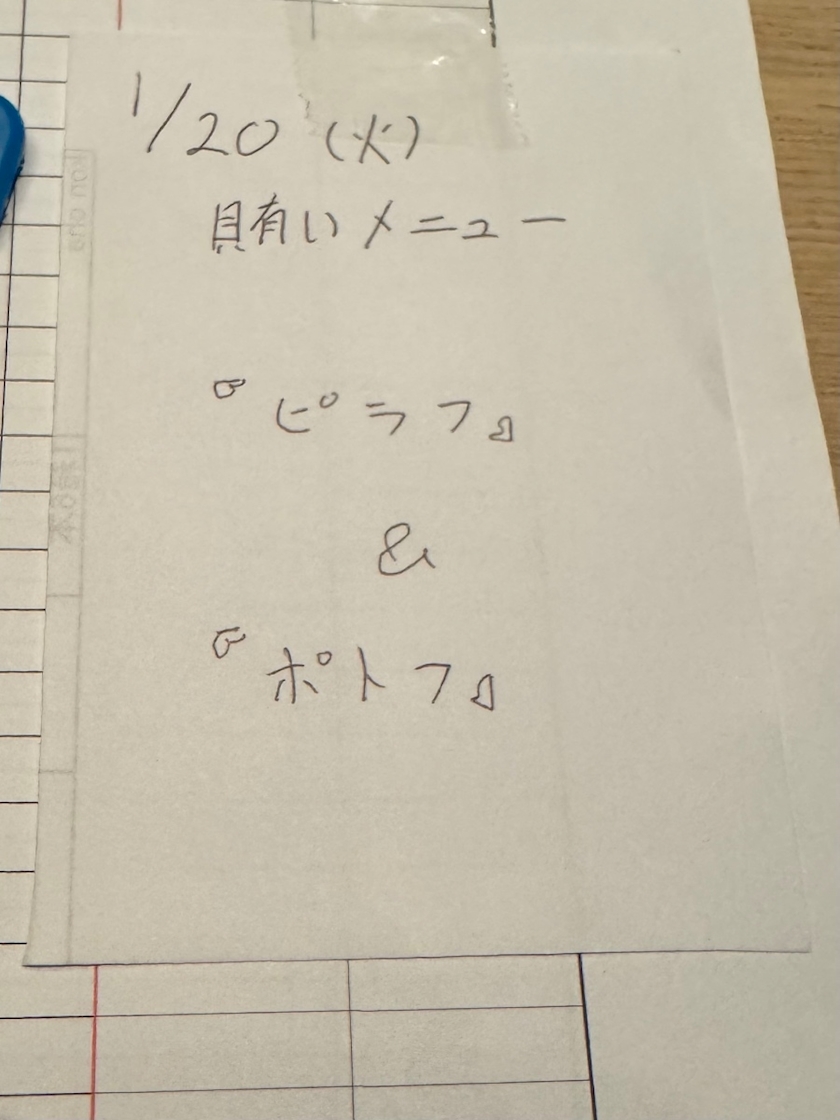 1/20 (火)
賄いメニュー
『ピラフ』
&
『ポトフ』